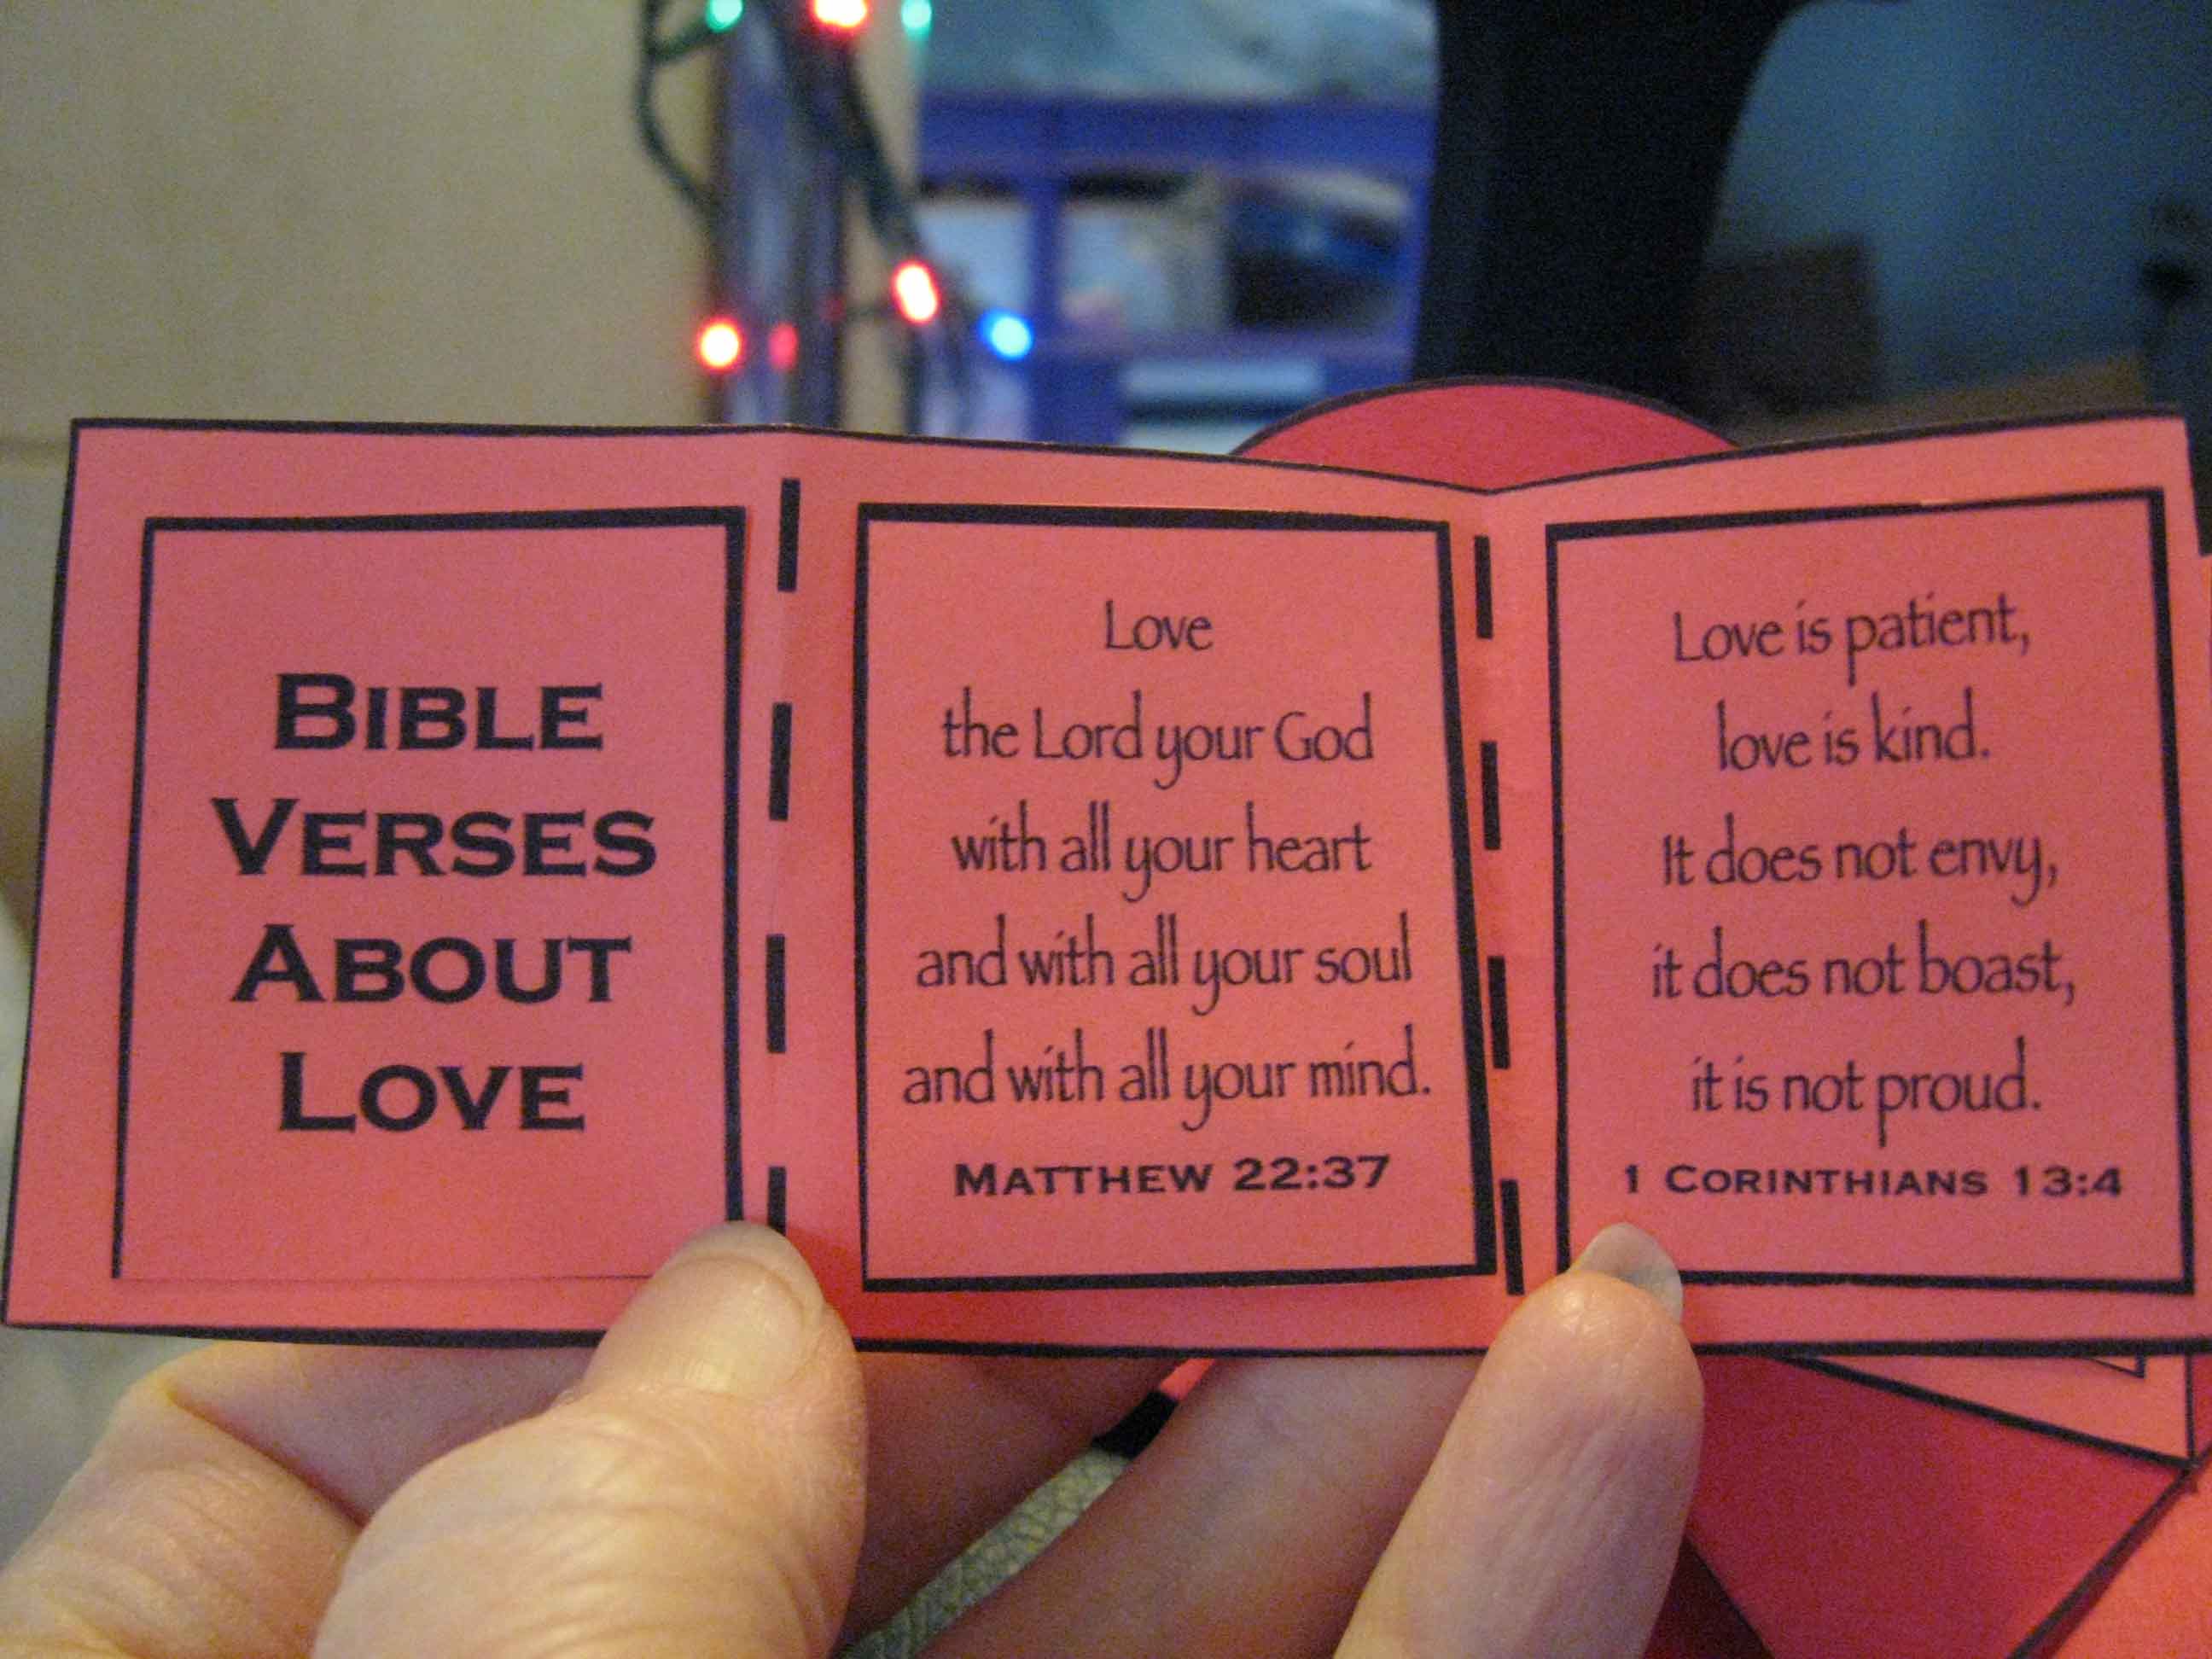 BIBLE
VERSES
ABOUT
LOVE
Love
the Lord your God
with all your heart
and with all your soul
and with all your mind.
MATTHEW 22:37
Love is patient,
love is kind.
It does not envy,
it does not boast,
it is not proud.
1 CORINTHIANS 13:4